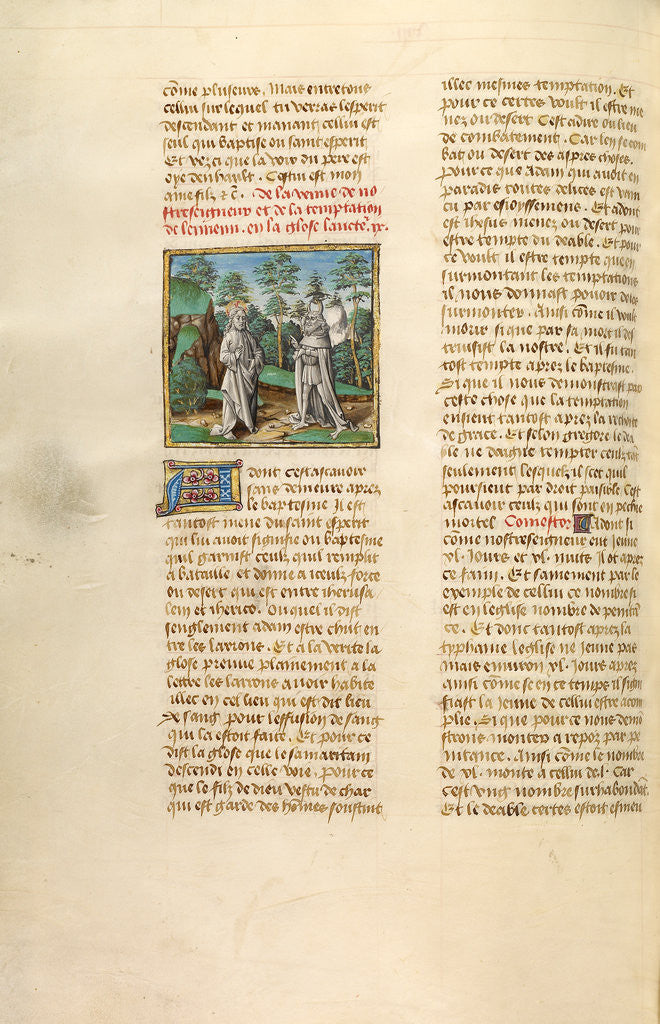 cõme pluseurs. Mais entretous
cellui sur lequel tu verras lesperit
descendant et manant cellui est
seul qui baptise ou saint esperit
Et vez ci que la voix du pere est
oye den hault. Cestui est mon
ame filz &c. De la venue de no
streseigneur et de la temptation
de lennemi. en la glose
A dont cest ascavoir
sans demeure aprez
le baptesme Il est
tantost mene du saint esperit
qui lui avoit signifie ou baptesme
quil garnist ceulz quil remplit
a bataille et donne a iceulz force
ou desert qui est entre iherusa
lem et iherico. Ou quel il dist
senglement adam estre chut en
tre les larrons. Et a la verite la
glose preuve plainement a la
lettre les larrons avoir habite
illec en cel lieu qui est dit lieu
de sang pour leffusion de sang
qui la estoit faite. Et pour ce
dist la glose que le samaritain
descendi en celle voie. pour ce
que le filz de dieu vestu de char
qui est garde des hõmes soustint
illec mesmes temptation. Et
pour ce certes voult il estre me
nez ou desert Cest adire ou lieu
de combatement. Car len se com
bat ou desert des aspres choses.
pour ce que Adam qui avoit en
paradis toutes delices est vain
cu par esioissemens. Et adont
est ihesus menez ou desert pour
estre tempte du deable. Et pour
ce voult il estre tempte que en
surmontant les temptations
il nous donnast pouoir de les
surmonter. Ainsi cõme il voult
morir si que par sa mort il des
truisist la nostre. Et il fu tan
tost tempte aprez le baptesme.
Si que il nous demonstrast par
ceste chose que la temptation
ensient tantost aprez la
de grace. Et selon gregore le dea
ble ne daigne tempter ceulz tant
seulement lesquelz il scet quil
poursient par droit paisible. Cest
ascavoir ceulz qui sont en pechie
mortel Comestor Adont si
cõme nostreseigneur eut jeune
xl. Jours et xl. nuits Il ot aprez
ce faim. Et sainement par le
exemple de cellui ce nombre si
est en leglise nombre de peniten
ce. Et donc tantost aprez la
typhanie leglise ne jeune pas
mais environ xl. Jours aprez
ainsi cõme se en ce temps il signi
fiast la jeune de cellui estre acom
plie. Si que pour ce nous demõ
strons monter a repoz par pe
nitance. Ainsi cõme le nombre
de xl. monte a cellui de l. Car
cest ung nombre surhabondat.
Et le deable certes estoit esmeu